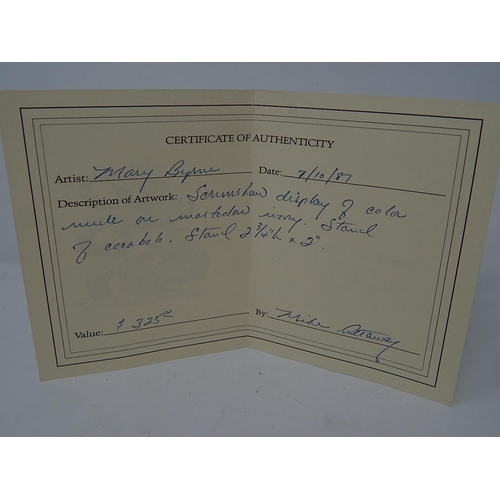 CERTIFICATE OF AUTHENTICITY
Artist: Mary Byrne Date: 7/10/87
Description of Artwork: Scrimshaw display of color
nude on mastodon ivory. Stand
of cocobolo. Stand 2 3/4"h x 2".
Value: $ 325.00 By: Mike Attaway